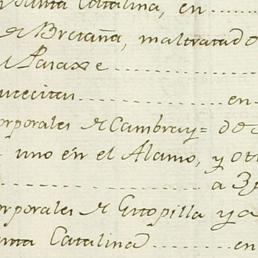 Santa Catalina, en
de Bretaña, maltratado
Paraxe
en
corporales de Cambray = do
uno en el Alamo, y ot
a 3
corporales de Estopilla y a
Santa Catalina en